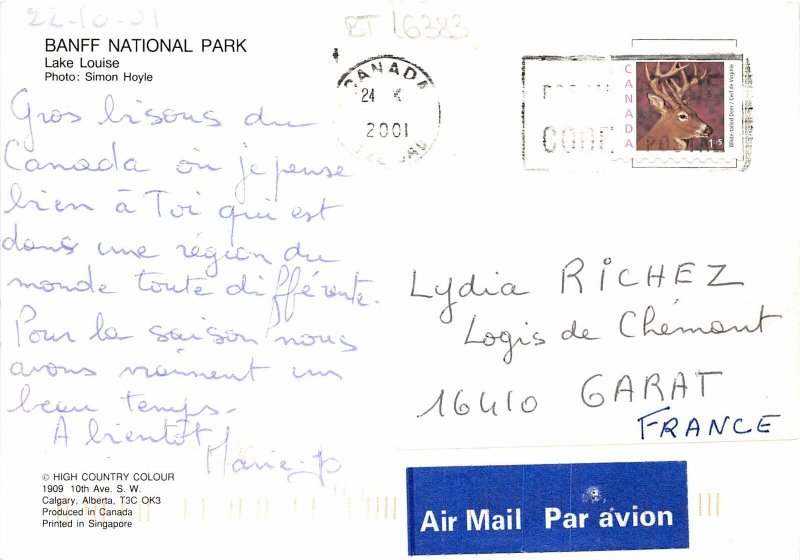 22-10-01
RT 16383
BANFF NATIONAL PARK
Lake Louise
Photo: Simon Hoyle
Gros bisous du
Canada où je pense
bien à Toi qui est
dans une région du
monde toute différente.
Pour la saison nous
avons vraiment un
beau temps.
A bientôt!
Marie-Jo
© HIGH COUNTRY COLOUR
1909 10th Ave. S. W.
Calgary, Alberta, T3C OK3
Produced in Canada
Printed in Singapore
CANADA
24
2001
CODE POSTAL
CANADA
White-tailed Deer / Cerf de Virginie
Lydia RICHEZ
Logis de Chémont
16410 GARAT
FRANCE
Air Mail Par avion